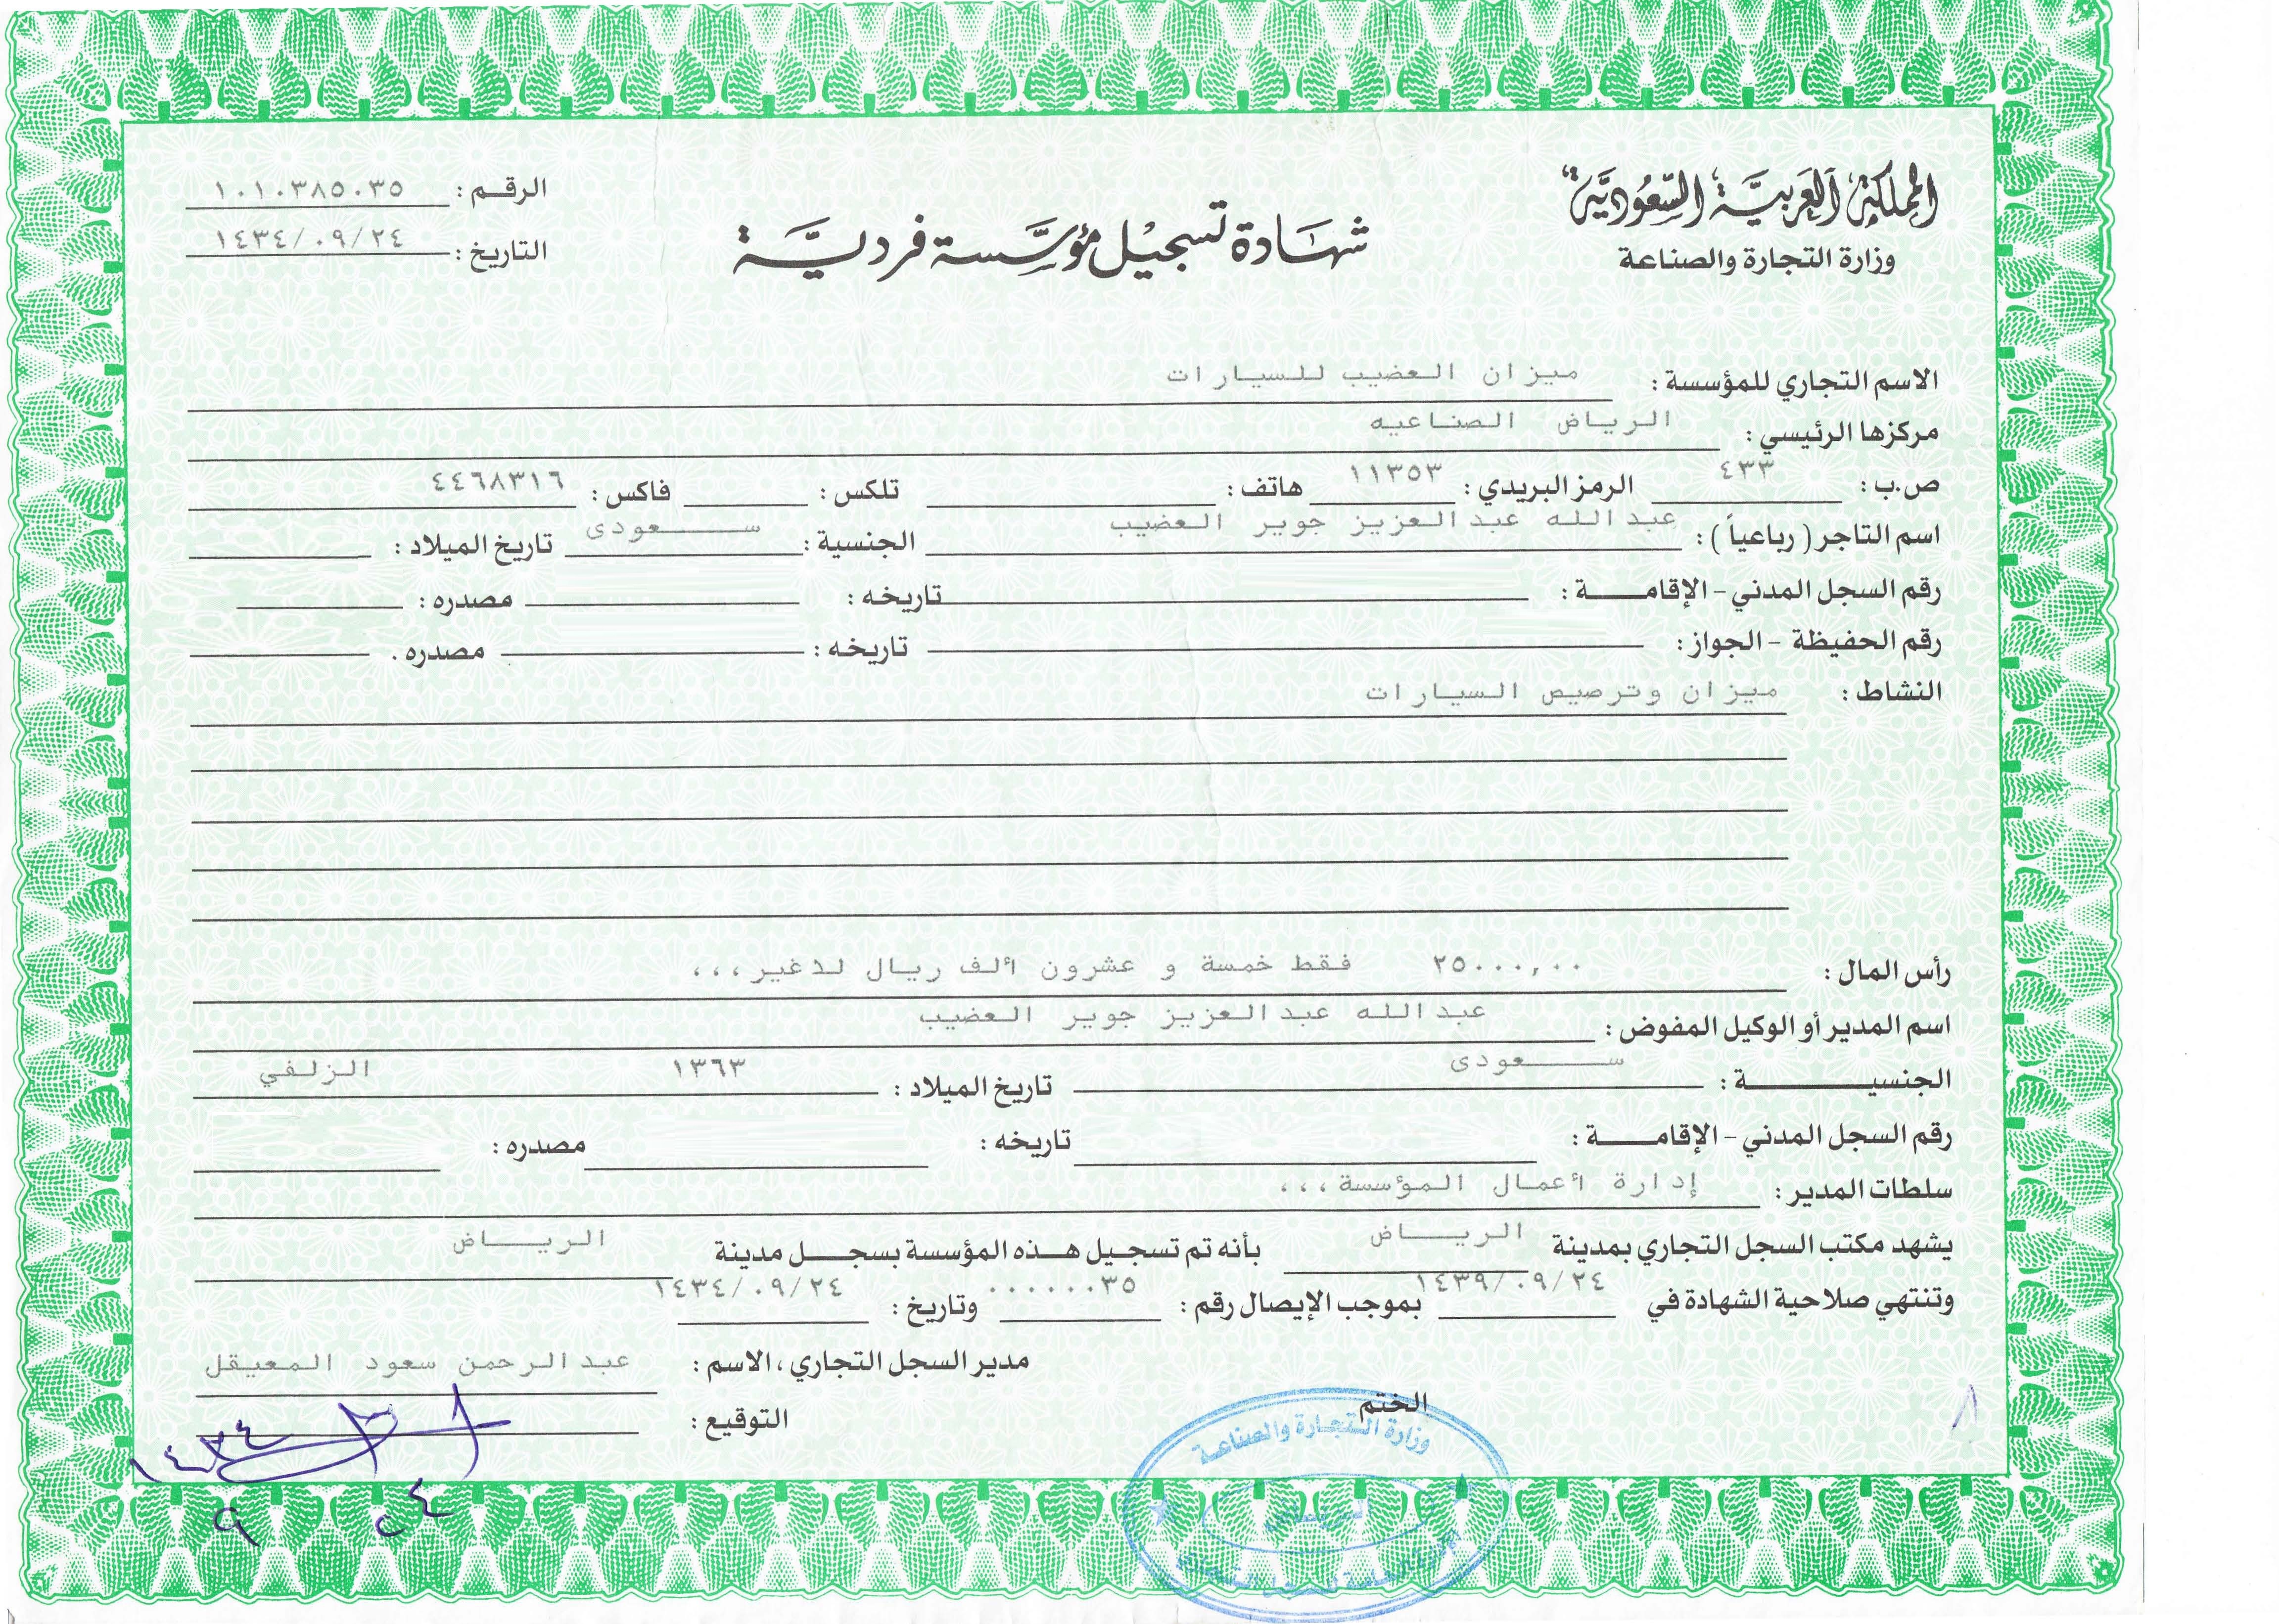 المملكة العربية السعودية
وزارة التجارة والصناعة
شهادة تسجيل مؤسسة فردية
الرقم : ١٠١٠٣٨٥٠٣٥
التاريخ : ١٤٣٤/٠٩/٢٤
الاسم التجاري للمؤسسة : ميزان العضيب للسيارات
مركزها الرئيسي : الرياض الصناعيه
ص.ب : ٤٣٣ الرمز البريدي : ١١٣٥٣ هاتف : تلكس : فاكس : ٤٤٦٨٣١٦
اسم التاجر ( رباعياً ) : عبدالله عبدالعزيز جوير العضيب الجنسية : سعودى تاريخ الميلاد :
رقم السجل المدني - الإقامة : تاريخه : مصدره :
رقم الحفيظة - الجواز : تاريخه : مصدره .
النشاط : ميزان وترصيص السيارات
رأس المال : ٢٥٠٠٠,٠٠ فقط خمسة و عشرون ألف ريال لاغير،،،
اسم المدير أو الوكيل المفوض : عبدالله عبدالعزيز جوير العضيب
الجنسية : سعودى تاريخ الميلاد : ١٣٦٣ الزلفي
رقم السجل المدني - الإقامة : تاريخه : مصدره :
سلطات المدير : إدارة أعمال المؤسسة،،،
يشهد مكتب السجل التجاري بمدينة الرياض بأنه تم تسجيل هذه المؤسسة بسجل مدينة الرياض
وتنتهي صلاحية الشهادة في ١٤٣٩/٠٩/٢٤ بموجب الإيصال رقم : ٠٠٠٠٠٠٣٥ وتاريخ : ١٤٣٤/٠٩/٢٤
مدير السجل التجاري ، الاسم : عبدالرحمن سعود المعيقل
الختم
التوقيع :
١٤٣٤
٩
٢٤
وزارة التجارة والصناعة
الرياض